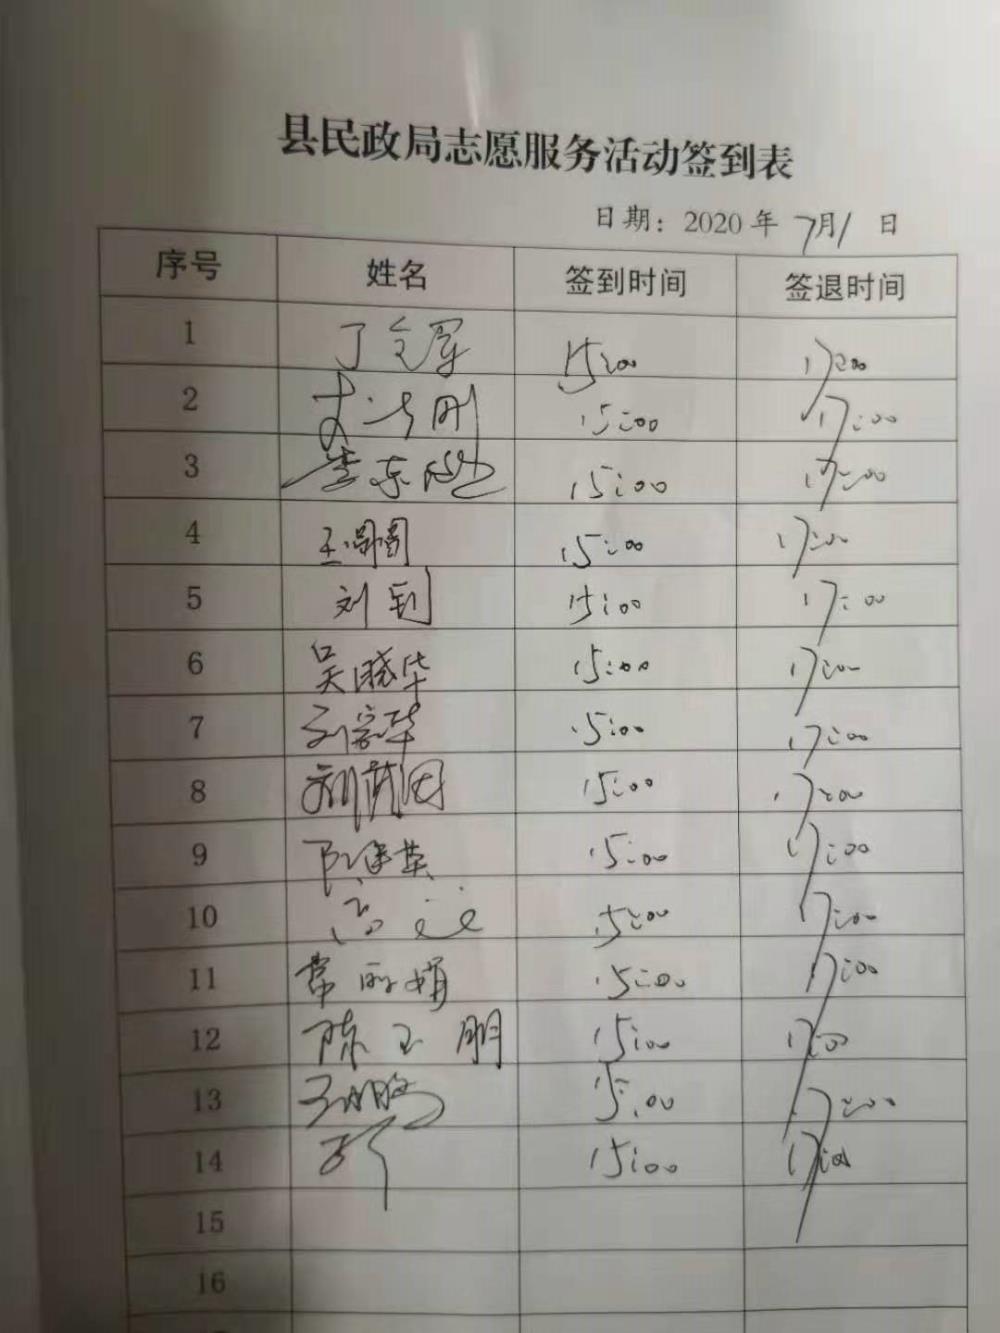 县民政局志愿服务活动签到表
日期：2020年 7月1 日
序号 姓名 签到时间 签退时间
1 丁文军 15:00 17:00
2 15:00 17:00
3 李东 15:00 17:00
4 王 15:00 17:00
5 刘钊 15:00 17:00
6 吴晓华 15:00 17:00
7 刘富华 15:00 17:00
8 15:00 17:00
9 陈建英 15:00 17:00
10 高 15:00 17:00
11 常丽娟 15:00 17:00
12 陈玉朋 15:00 17:00
13 15:00 17:00
14 15:00 17:00
15
16